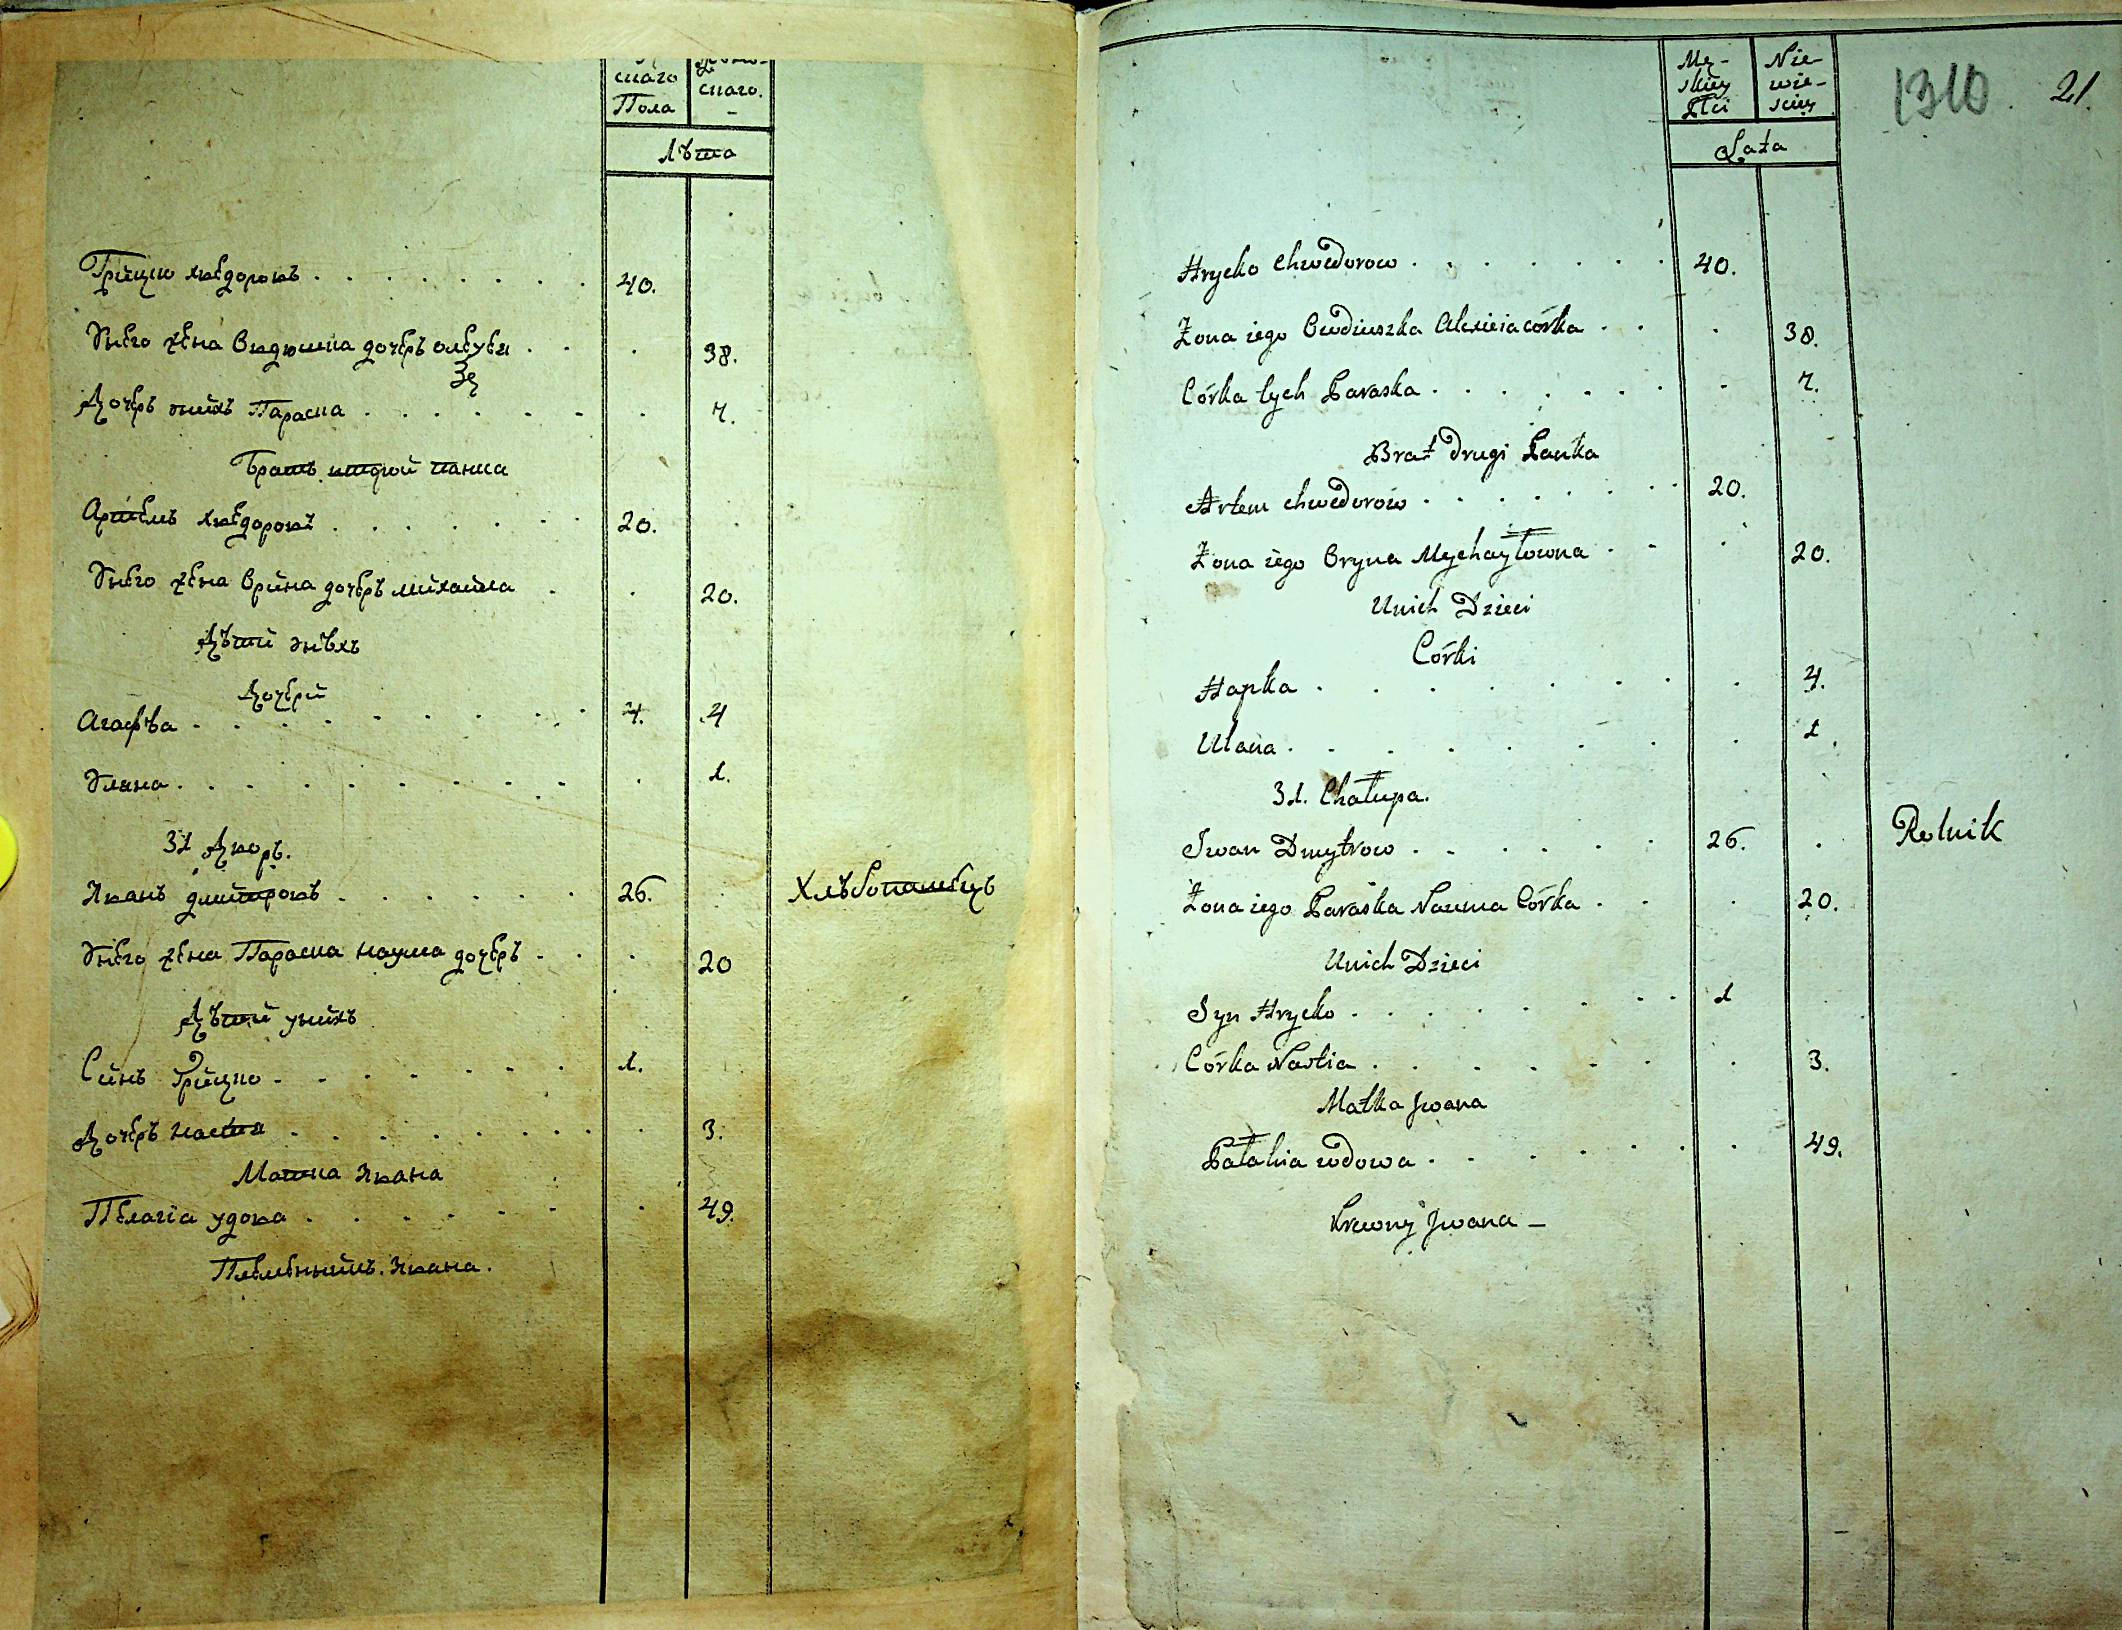 снаго
Пола
снаго.
Лѣта
Грицко хведоровъ 40.
Унего жена Овдюшка дочерь олексѣя 38.
Дочерь унихъ Параска 7.
Братъ второй панка
Артемъ хведоровъ 20.
Унего жена Орина дочерь михайла 20.
Дѣти унѣхъ
Дочери
Агафѣа 4. 4
Улана 1.
31 Дворъ.
Иванъ дмитровъ 26. Хлѣбопашецъ
Унего жена Параска наума дочерь 20
Дѣти унихъ
Синъ Грицко 1.
Дочерь настя 3.
Матка Ивана
Пелагіа удова 49.
Племенникъ Ивана.
Mę- Nie-
skiey wie-
Płci sciey
Lata
1310 21.
Hrycko Chwedorow 40.
Zona iego Owdiuszka Alexieia córka 38.
Córka tych Paraska 7.
Brat Drugi Panka
Artem Chwedorow 20.
Zona iego Oryna Mychayłowna 20.
Unich Dzieci
Córki
Hapka 4.
Ulana 1.
31. Chałupa.
Iwan Dmytrow 26. Rolnik
Zona iego Paraska Nauma Córka 20.
Unich Dzieci
Syn Hrycko 1
Córka Nastia 3.
Matka Jwana
Pałahia wdowa 49.
Krewny Jwana –